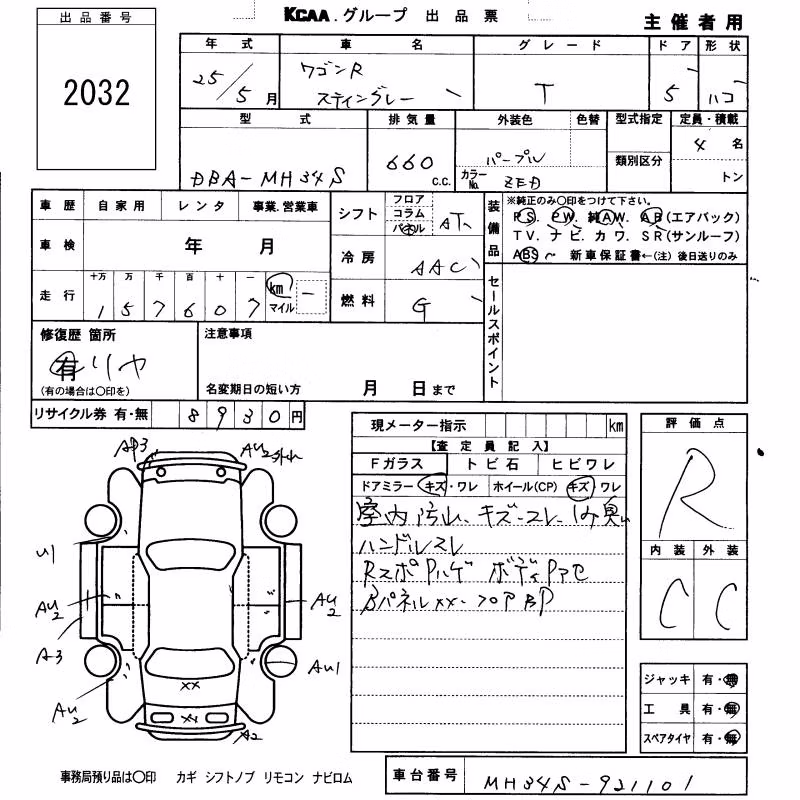 出品番号
2032
KCAA.グループ 出品票
主催者用
年式 車名 グレード ドア 形状
25/5月 ワゴンR スティングレー T 5 ハコ
型式 排気量 外装色 色替 型式指定 定員・積載
DBA-MH34S 660 c.c. パープル 類別区分 4名
カラーNo. ZED トン
車歴 自家用 レンタ 事業.営業車
車検 年 月
走行 十万 万 千 百 十 一 km マイル
1 5 7 6 0 7 —
シフト フロア コラム パネル AT
冷房 AAC
燃料 G
装備品
※純正のみ○印をつけて下さい。
PS. PW. 純AW. AB(エアバック)
TV. ナビ. カワ. SR(サンルーフ)
ABS 〜 新車保証書←(注)後日送りのみ
セールスポイント
修復歴 箇所
有 リヤ
(有の場合は○印を)
注意事項
名変期日の短い方 月 日まで
リサイクル券 有・無 8930円
現メーター指示 km
【査定員記入】
Fガラス トビ石 ヒビワレ
ドアミラー キズ・ワレ ホイール(CP) キズ・ワレ
室内汚れ、キズ-スレ-シミ臭い
ハンドルスレ
RスポPハゲ ボディPアセ
BパネルXX-フロアBP
評価点
R
内装 外装
C C
AP3
AU2 外れ
U1
AU2
A3
AU2
AU2
AU1
A2
XX
XX
ジャッキ 有・無
工具 有・無
スペアタイヤ 有・無
事務局預り品は○印 カギ シフトノブ リモコン ナビロム
車台番号 MH34S-921101